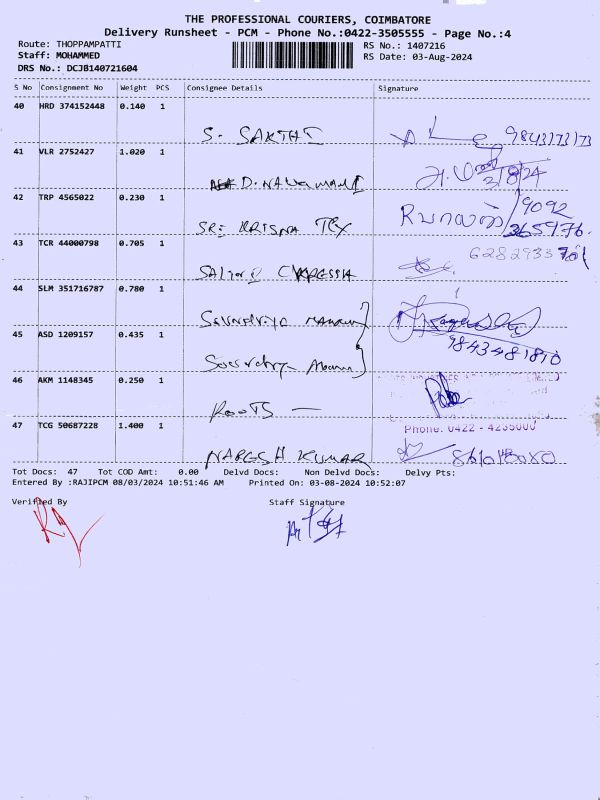 THE PROFESSIONAL COURIERS, COIMBATORE
Delivery Runsheet - PCM - Phone No.:0422-3505555 - Page No.:4
Route: THOPPAMPATTI RS No.: 1407216
Staff: MOHAMMED RS Date: 03-Aug-2024
DRS No.: DCJB140721604
S No Consignment No Weight PCS Consignee Details Signature
40 HRD 374152448 0.140 1
S. SAKTHI
41 VLR 2752427 1.020 1
D. NAVAMANI 3/8/24
42 TRP 4565022 0.230 1 9092
SRI KRISNA TEX 365976.
43 TCR 44000798 0.705 1
44 SLM 351716787 0.780 1
45 ASD 1209157 0.435 1 9843481810
46 AKM 1148345 0.250 1
ROOTS —
47 TCG 50687228 1.400 1 Phone: 0422 - 4235000
NARESH KUMAR
Tot Docs: 47 Tot COD Amt: 0.00 Delvd Docs: Non Delvd Docs: Delvy Pts:
Entered By :RAJIPCM 08/03/2024 10:51:46 AM Printed On: 03-08-2024 10:52:07
Verified By Staff Signature